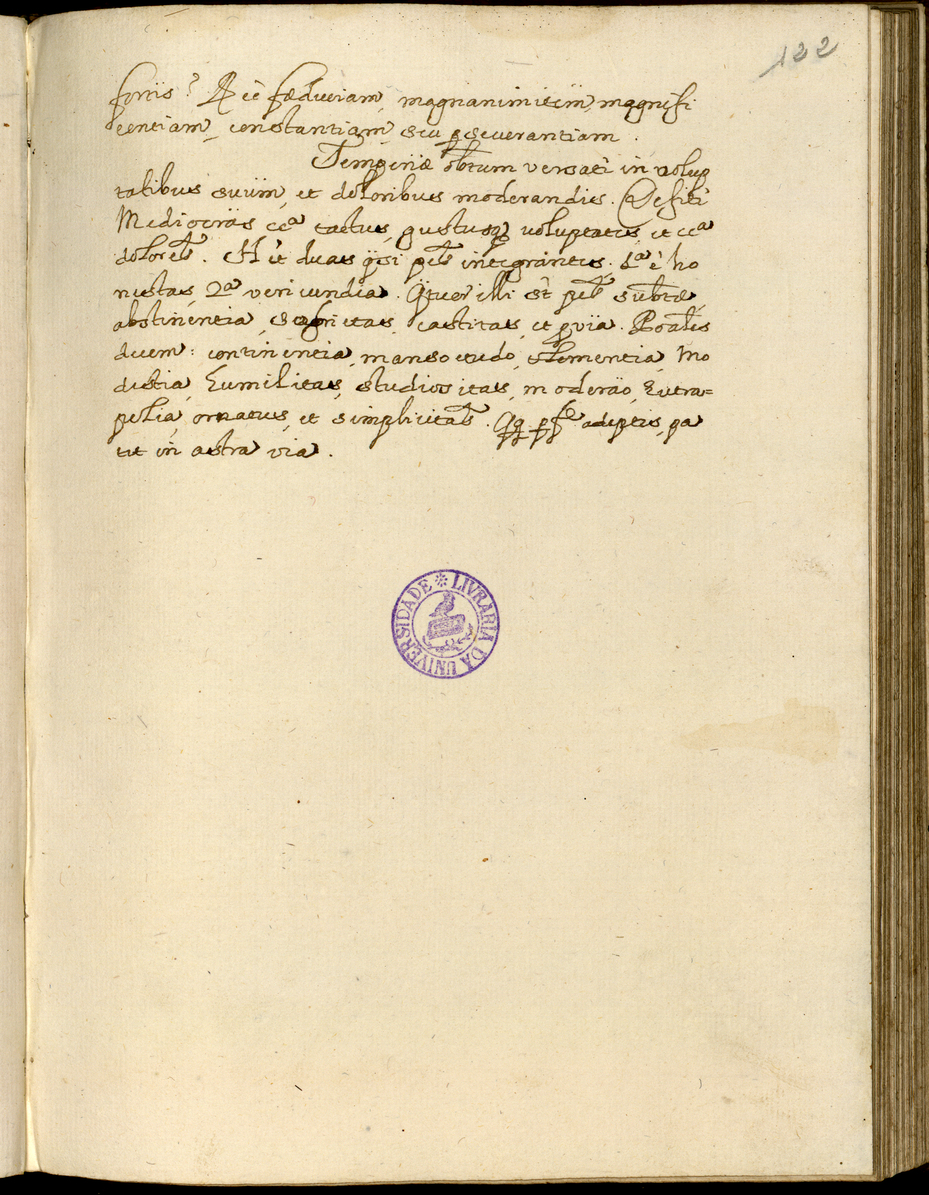 122
fortis? R. eē fiduciam, magnanimitēm, magnifi
centiam, constantiam, seu perseverantiam.
Temperiæ obtum versatr̄ in volup
tatibus suūm, et doloribus moderandis. Definitr̄
Mediocritas cca tactus, gustusq voluptates, et cca
dolores. Hēt duas qsi ptes integrantes. 1a ē ho
nestas, 2a verecundia. Qtuor illi st ptes subtæ,
abstinentia, sobrietas, castitas, et
duem: continentia, mansuetudo, clementia, mo
destia, humilitas, studiositas, moderāo, Eutra=
pelia, ornatus, et simplicitas. adeptis, pa
tet in astra via.
LIVRARIA DA UNIVERSIDADE